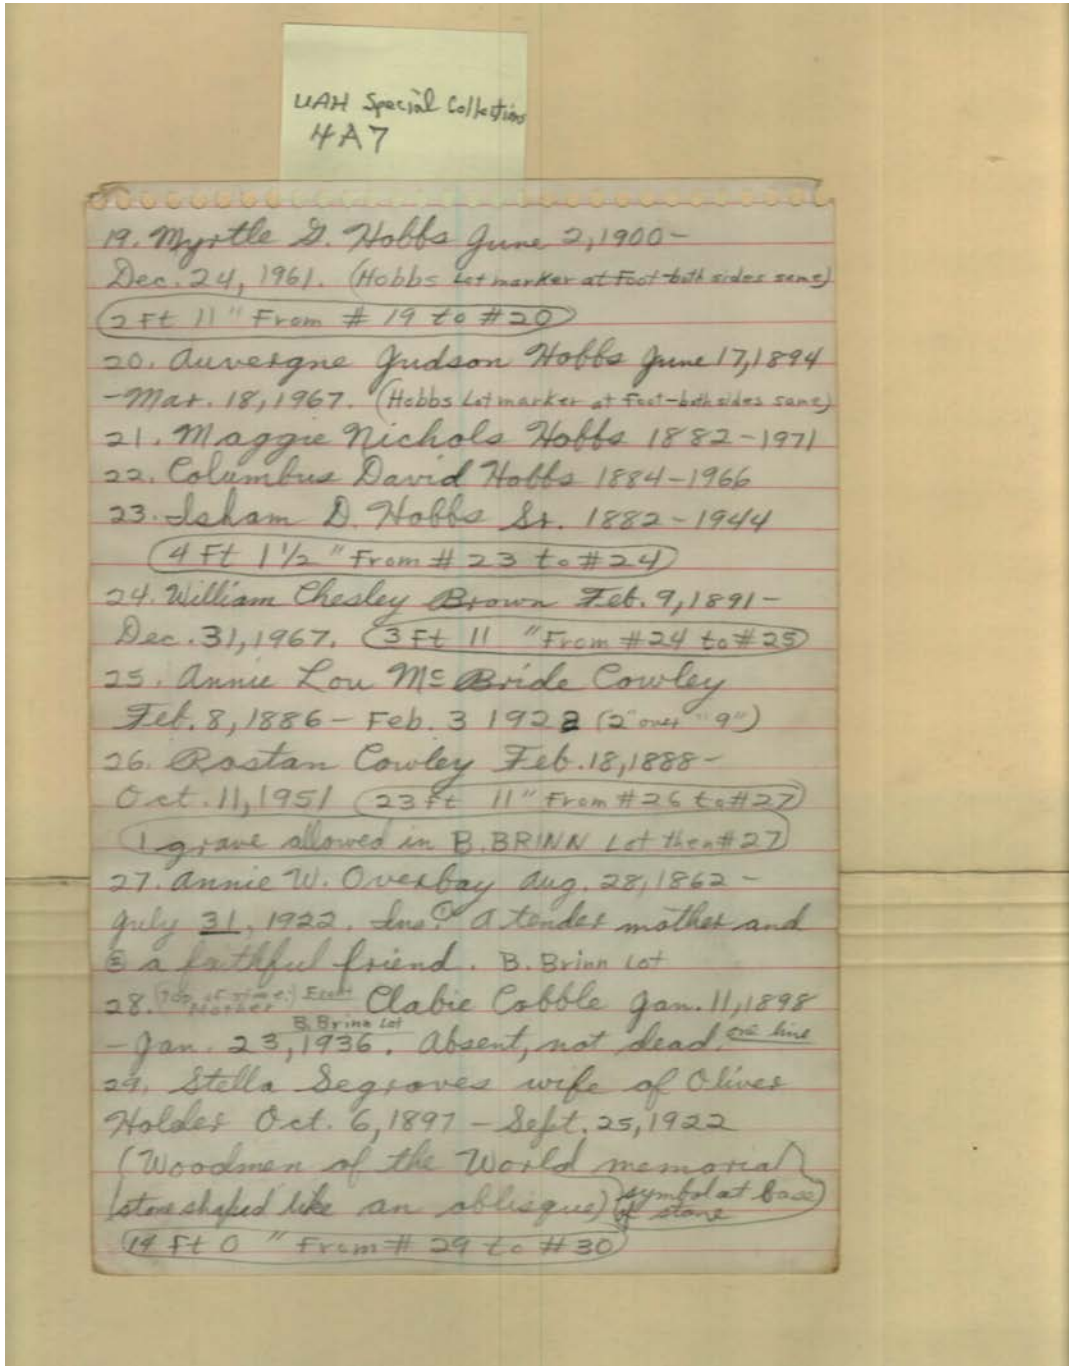 UAH Special Collections
4A7
19. Myrtle G. Hobbs June 2, 1900-
Dec. 24, 1961. (Hobbs Lot marker at Foot-both sides same)
2 Ft 11" From # 19 to #20
20. Auvergne Judson Hobbs June 17, 1894
-Mar. 18, 1967. (Hobbs Lot marker at Foot-both sides same)
21. Maggie Nichols Hobbs 1882-1971
22. Columbus David Hobbs 1884-1966
23. Isham D. Hobbs Sr. 1882-1944
4 Ft 1 1/2" From # 23 to #24
24. William Chesley Brown Feb. 9, 1891-
Dec. 31, 1967. 3 Ft 11 "From #24 to #25
25. Annie Lou Mc Bride Cowley
Feb. 8, 1886- Feb. 3 1922 (2" over "9")
26. Rostan Cowley Feb. 18, 1888-
Oct. 11, 1951 23 Ft 11" From #26 to #27
1 grave allowed in B. BRINN Lot then #27
27. Annie W. Overbay Aug. 28, 1862-
July 31, 1922. Ins: ① A tender mother and
② a faithful friend. B. Brinn Lot
28. (Top of stone:) Mother Front Clabie Cobble Jan. 11, 1898
B. Brinn Lot
-Jan. 23, 1936. Absent, not dead. one line
29. Stella Segroves wife of Oliver
Holder Oct. 6, 1897 - Sept. 25, 1922
(Woodmen of the World memorial
stone shaped like an oblisque) (symbol at base)
of stone
14 Ft 0 " From # 29 to #30